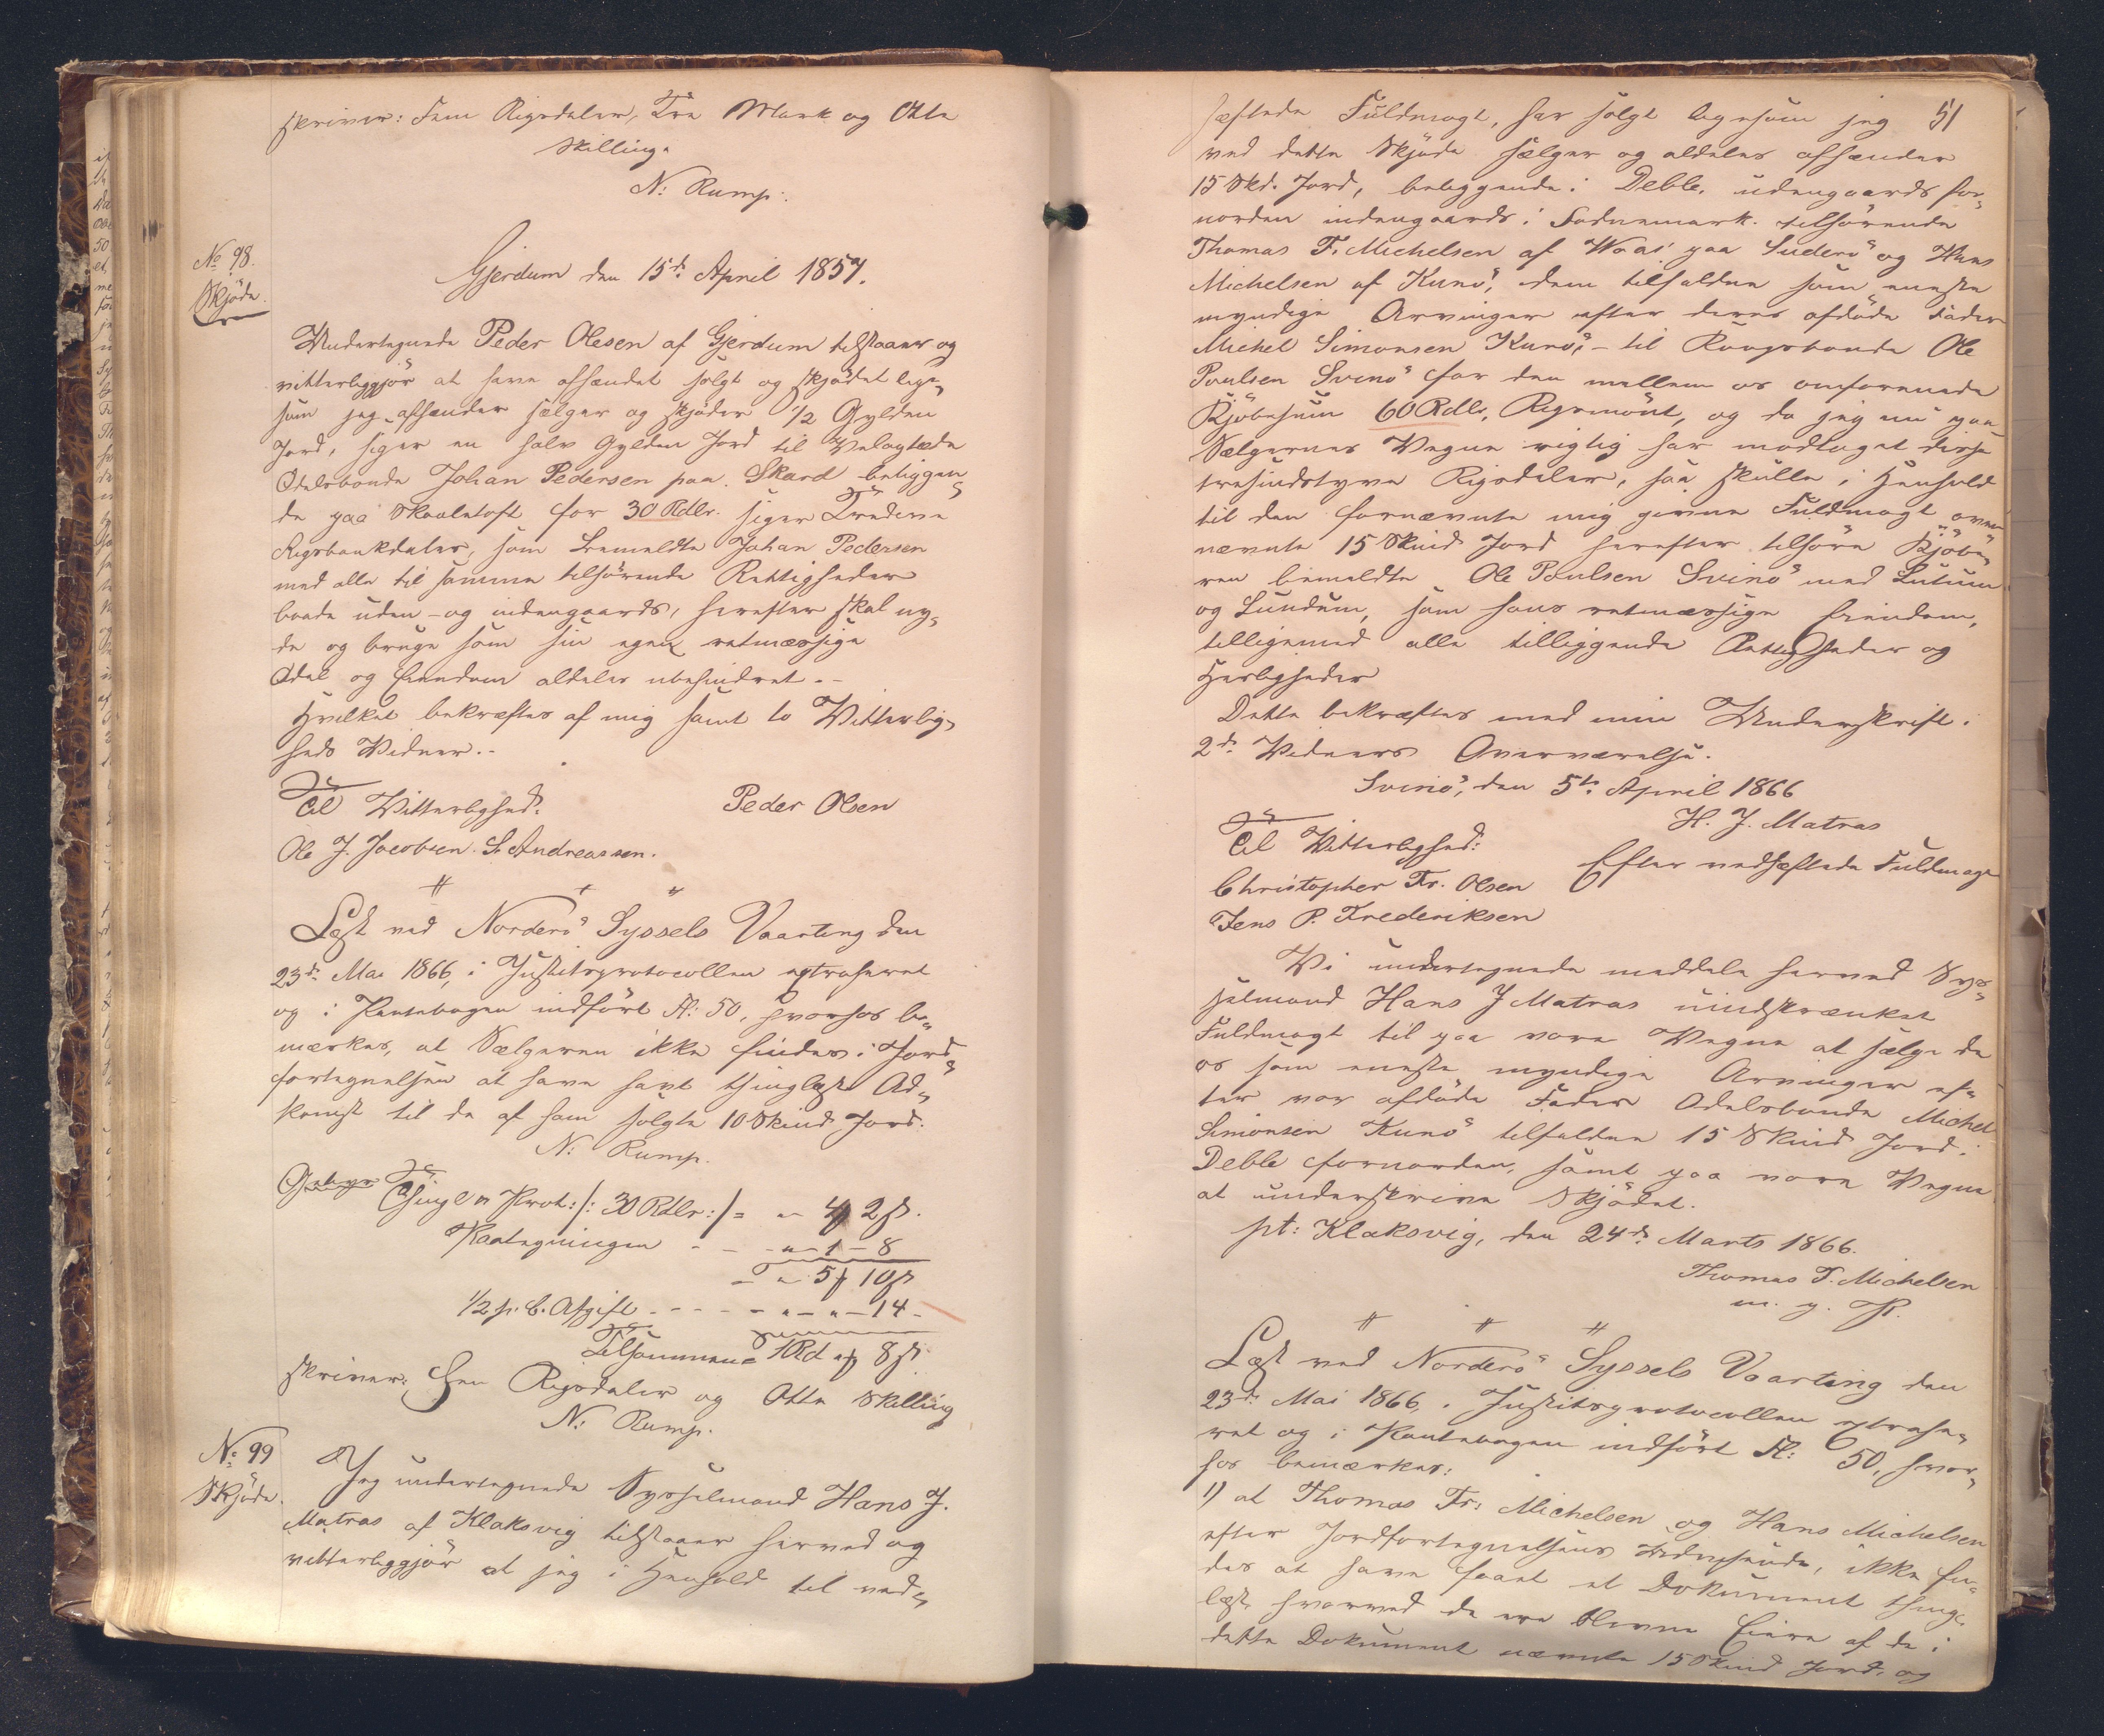 skriver: Fem Rigsdaler, Tre Mark og Otte
Skilling.
N: Rump.
No 98.
Skjöde.
Gjerdum den 15de April 1857.
Undertegnede Peder Olesen af Gjerdum tilstaaer og
vitterliggjör at have afhændet solgt og skjödet lige„
som jeg afhænder sælger og skjöder 1/2 Gylden
Jord, siger en halv Gylden Jord til Velagtede
Odelsbonde Johan Pedersen paa Skard beliggen„
de paa Skaaletoft for 30 Rdlr. siger Tredive
Rigsbankdaler, som bemeldte Johan Pedersen
med alle til samme tilhörende Rettigheder
baade uden- og indengaards, herefter skal ny„
de og bruge som sin egen retmæssige
Odel og Eiendom aldeles ubehindret.-
Hvilket bekræftes af mig samt to Vitterlig„
heds Vidner.-
Til Vitterlighed:
Peder Olsen
Ole J. Jacobsen. S. Andreassen.
Læst ved Norderö Syssels Vaarting den
23de Mai 1866, i Justitsprotocollen extraheret
og i Pantebogen indfört Fl: 50, hvorhos be„
mærkes, at Sælgeren ikke findes i Jord„
fortegnelsen at have havt thinglæst Ad„
komst til de af ham solgte 10 Skind Jord.
N: Rump.
Gebyr Thingl n Prot:/: 30 Rdlr:/ = " 4 2 ß.
Paategningen - - " - 1 - 8
- " 5 10 ß
1/2 p. C. Afgift - - - - - " - " - 14 -
Tilsammen 1 Rd " 8 ß
skriver: Een Rigsdaler og Otte Skilling
N: Rump.
No 99
Skjöde.
Jeg undertegnede Sysselmand Hans J.
Matras af Klaksvig tilstaaer herved og
vitterliggjör at jeg i Henhold til ved„
51
hæftede Fuldmagt, har solgt ligesom jeg
ved dette Skjöde sælger og aldeles afhænder
15 Skd. Jord, beliggende i Deble, udengaards for„
norden indengaards i Sodnemark tilhörende
Thomas F. Michelsen af Waai paa Suderö og Hans
Michelsen af Kunö, dem tilfalden som eneste
myndige Arvinger efter deres afdöde Fader
Michel Simonsen Kunö, - til Kongsbonde Ole
Poulsen Svinö for den mellem os omforenede
Kjöbesum 60 Rdlr. Rigsmönt, og da jeg nu paa
Sælgernes Vegne rigtig har modtaget disse
tresindstyve Rigsdaler, saa skulle i Henhold
til den fornævnte mig givne Fuldmagt oven
nævnte 15 Skind Jord herefter tilhöre Kjöbe„
ren bemeldte Ole Poulsen Svinö med Lutum
og Lundum, som hans retmæssige Eiendom,
tilligemed alle tilliggende Rettigheder og
Herligheder
Dette bekræftes med min Underskrift i
2de Vidners Overværelse.
Svinö, den 5te April 1866
H. J. Matras
Til Vitterlighed:
Efter vedhæftede Fuldmagt
Christopher Fr. Olsen
Jens P. Frederiksen
Vi undertegnede meddele herved Sys„
selmand Hans J Matras uindskrænket
Fuldmagt til paa vore Vegne at sælge de
os som eneste myndige Arvinger ef„
ter vor afdöde Fader Odelsbonde Michel
Simonsen Kunö tilfaldne 15 Skind Jord i
Deble fornorden, samt paa vore Vegne
at underskrive Skjödet.
pt: Klaksvig, den 24de Marts 1866.
Thomas F. Michelsen
m. p. P.
Læst ved Norderö Syssels Vaarting den
23de Mai 1866, i Justitsprotocollen extrahe„
ret og i Pantebogen indfört Fl: 50, hvor„
hos bemærkes:
1) at Thomas Fr: Michelsen og Hans Michelsen
efter Jordfortegnelsens Udvisende, ikke fin„
des at have faaet et Dokument thing„
læst, hvorved de ere blevne Eiere af de i
dette Dokument nævnte 15 Skind Jord, og